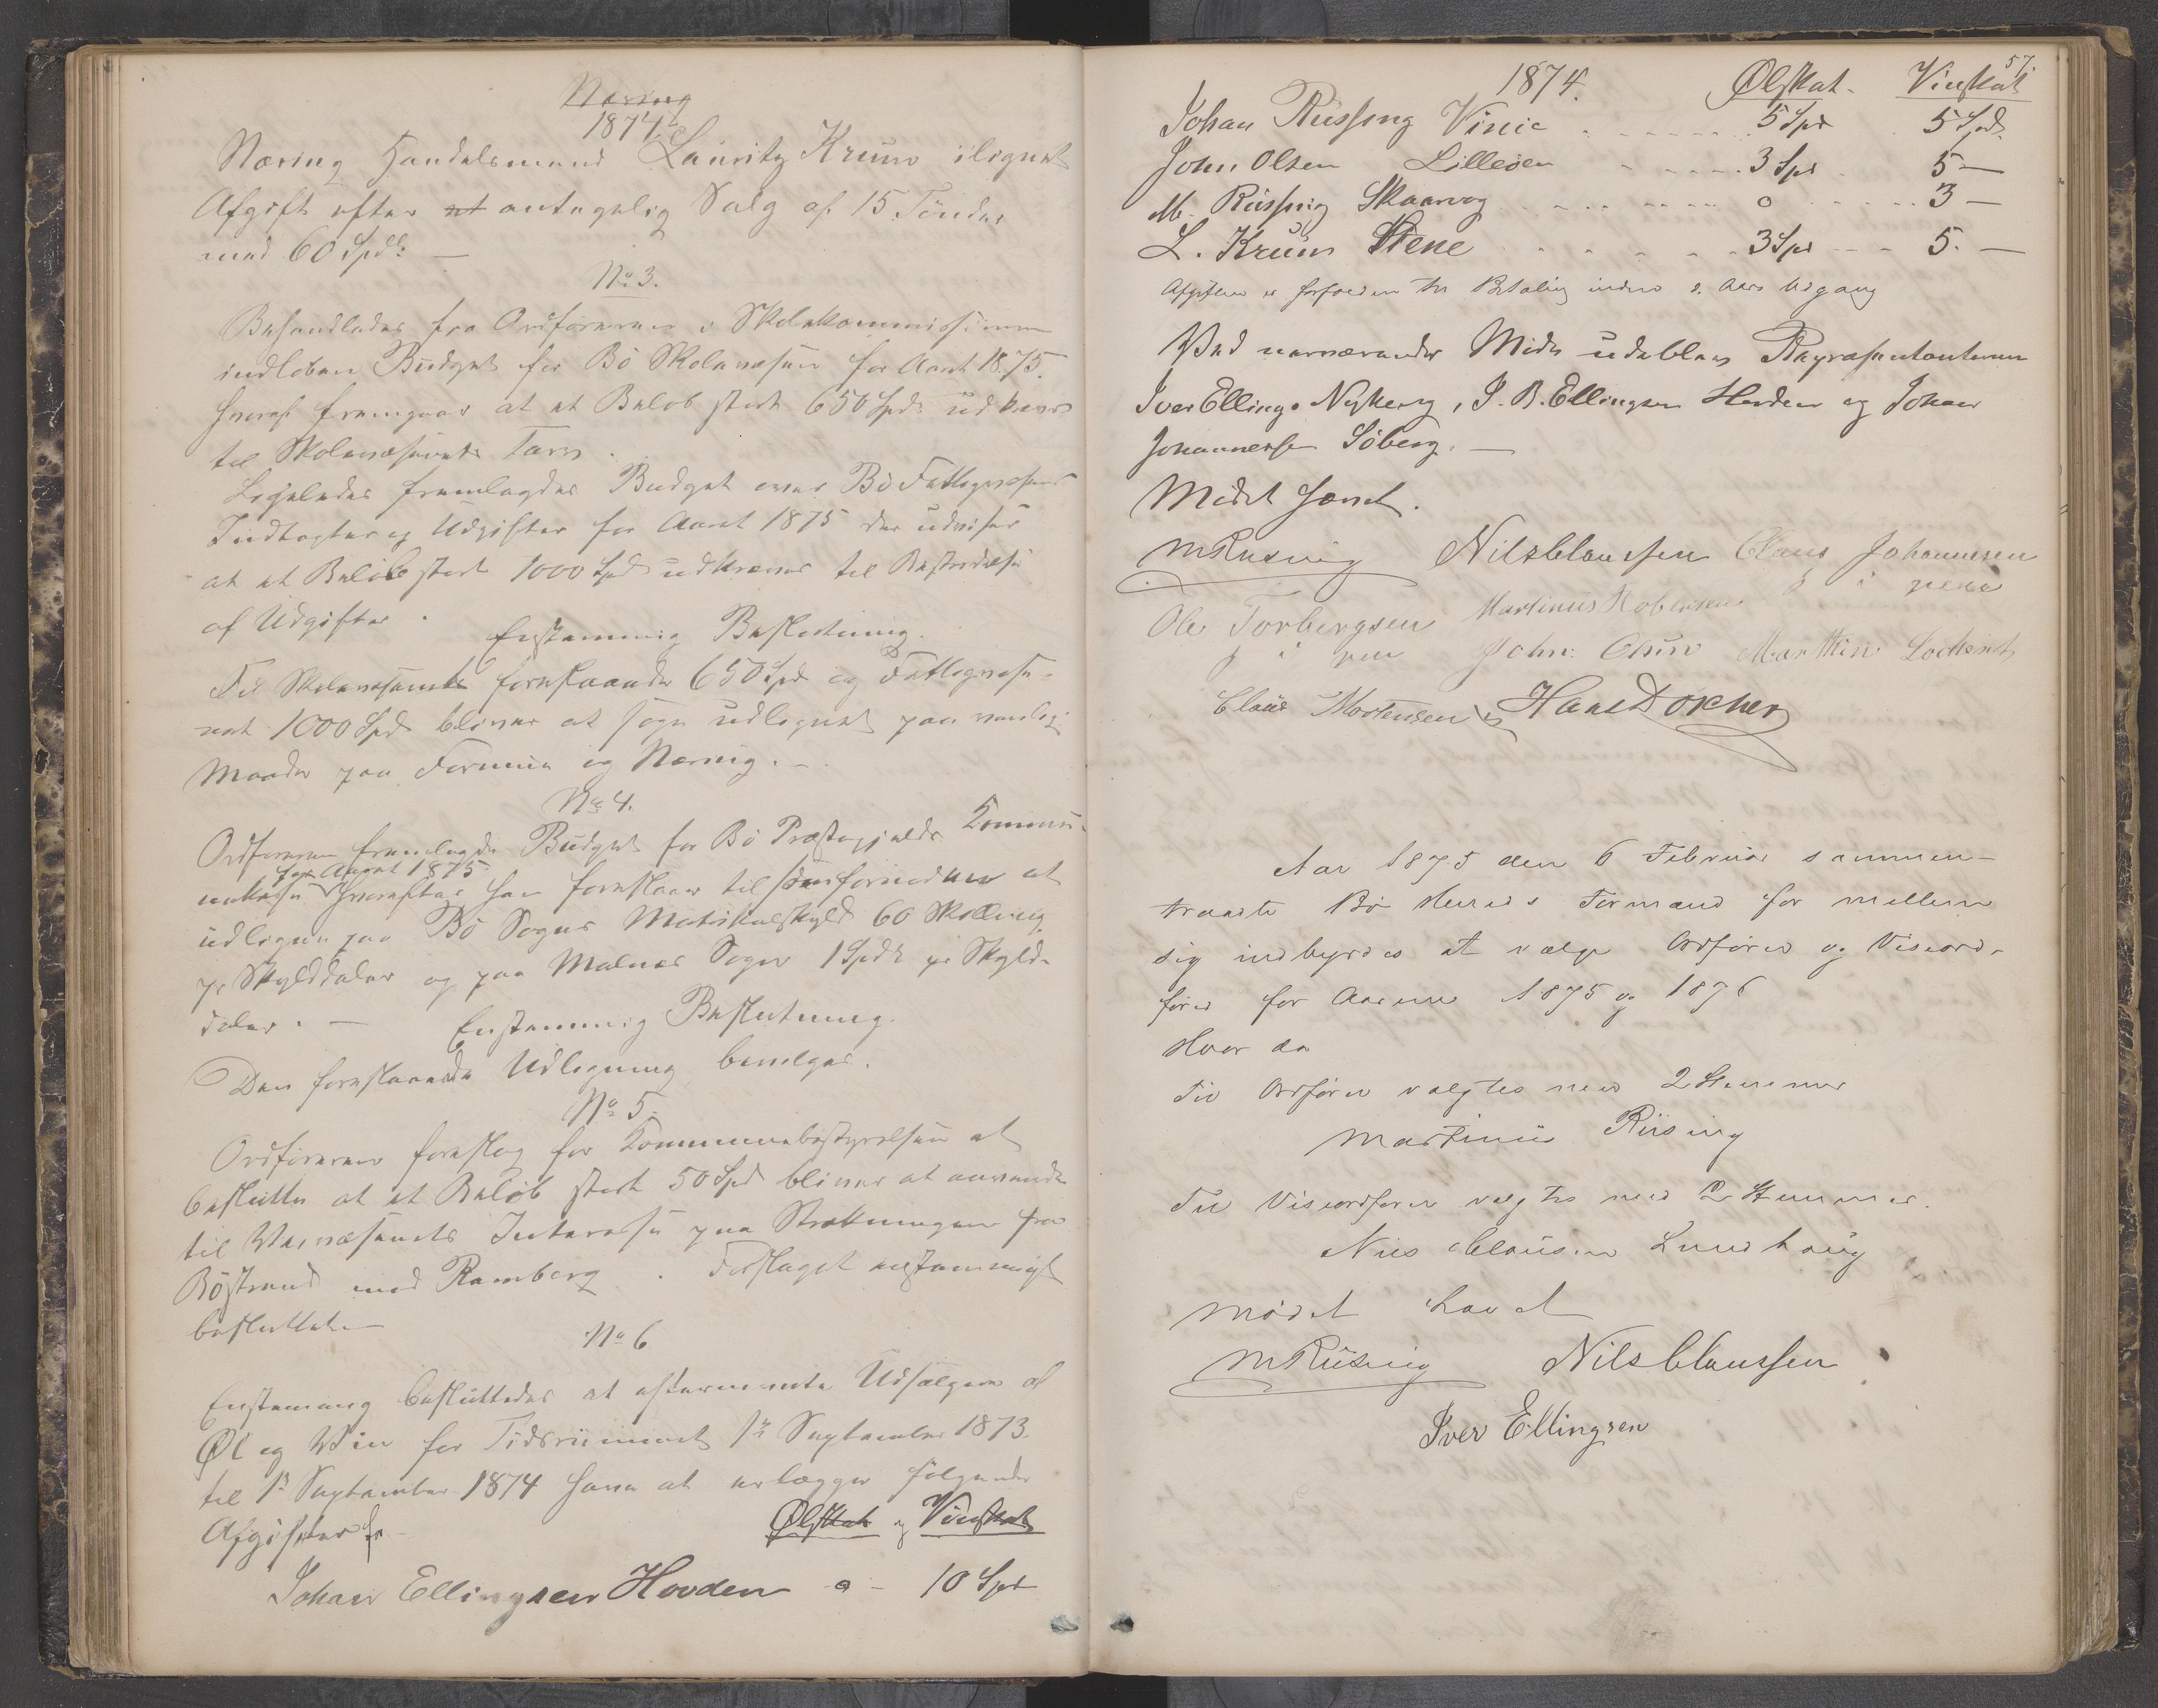 Næring
1874.
Næring Handelsmand Lauritz Kruus ilignet
Afgift efter et antagelig Salg af 15 Tönder
med 60 Spd. —
No 3.
Behandledes fra Ordföreren i Skolekommissionen
indloben Budget for Bö Skolevæsen for Aaret 1875.
hvoraf fremgaar at et Belöb stort 650 Spd. udkræves
til Skolevæsenets Tarv.
Ligeledes fremlagdes Budget over Bö Fattigvæsens
Indtægter og Udgifter for Aaret 1875 der udviser
at et Belöb stort 1000 Spd udkræves til Bestridelse
af Udgifter.
Enstemmig Beslutning.
Til Skolevæsenet forestaaende 650 Spd og Fattigvæse-
net 1000 Spd bliver at söge udlignet paa vanlig
Maade paa Formue og Næring. —
No 4.
Ordföreren fremlagde Budget for Bö Præstegjelds Kommu-
for Aaret 1875
nekasse hvorefter han foreslaar til at
udlignes paa Bö Sogns Matrikulskyld 60 Skilling
pr Skylddaler og paa Malnes Sogn 1 Spd pr Skyld-
daler. —
Enstemmig Beslutning.
Den foreslaaede Udligning bevilges.
No 5.
Ordföreren foreslog for Kommunebestyrelsen at
beslutte at et Belöb stort 50 Spd bliver at anvende
til Veivæsenets Interesse paa Strækningen fra
Böstrand mod Ramberg. Forslaget enstemmigt
besluttet. —
No 6
Enstemmig besluttedes at efternævnte Udsælgere af
Øl og Vin for Tidsrummet 1ste September 1873.
til 1ste September 1874 have at erlægge fölgende
Afgifter
Ølskat og Vinskat
Johan Ellingsen Hovden o - 10 Spd
57.
1874. Ølskat - Vinskat
Johan Rüssing Vinie 5 Spd 5 Spd.
John Olsen Lilleöen 3 Spd 5 —
M. Rüssing Skaarvog o 3 —
L. Kruus Stene 3 Spd 5. —
Afgiften er forfalden til Betaling inden d. Aars Udgang
Ved nærværende Möde udeblev Repræsentanterne
Iver Ellings. Nykvog, J. B. Ellingsen Hovden og Johan
Johannessen Söberg. —
Mödet hævet.
MRüsing Nils Claussen Claus Johannesen
i pen
Ole Torbergsen Martinus Robertsen
i pen John: Olsen Marthin Lochert
Claus Mortensen Hans Dorther
Aar 1875 den 6 Februar sammen-
traadte Bö Herreds Formænd for mellem
sig indbyrdes at vælge Ordförer og Viseord-
förer for Aarene 1875 og 1876
Hvor da
Til Ordförer valgtes med 2 Stemmer
Martinus Rüsing
Til Viseordförer valgtes med 2 Stemmer.
Nils Clausen Lundhaug
Mödet hævet
MRüsing Nils Claussen
Iver Ellingsen